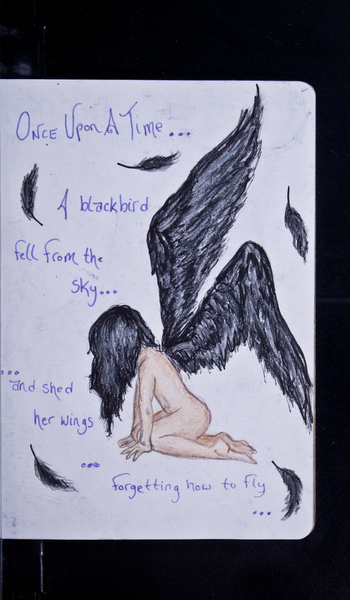 Once Upon A Time...
A blackbird
fell from the
sky...
...and shed
her wings
...forgetting how to fly
...